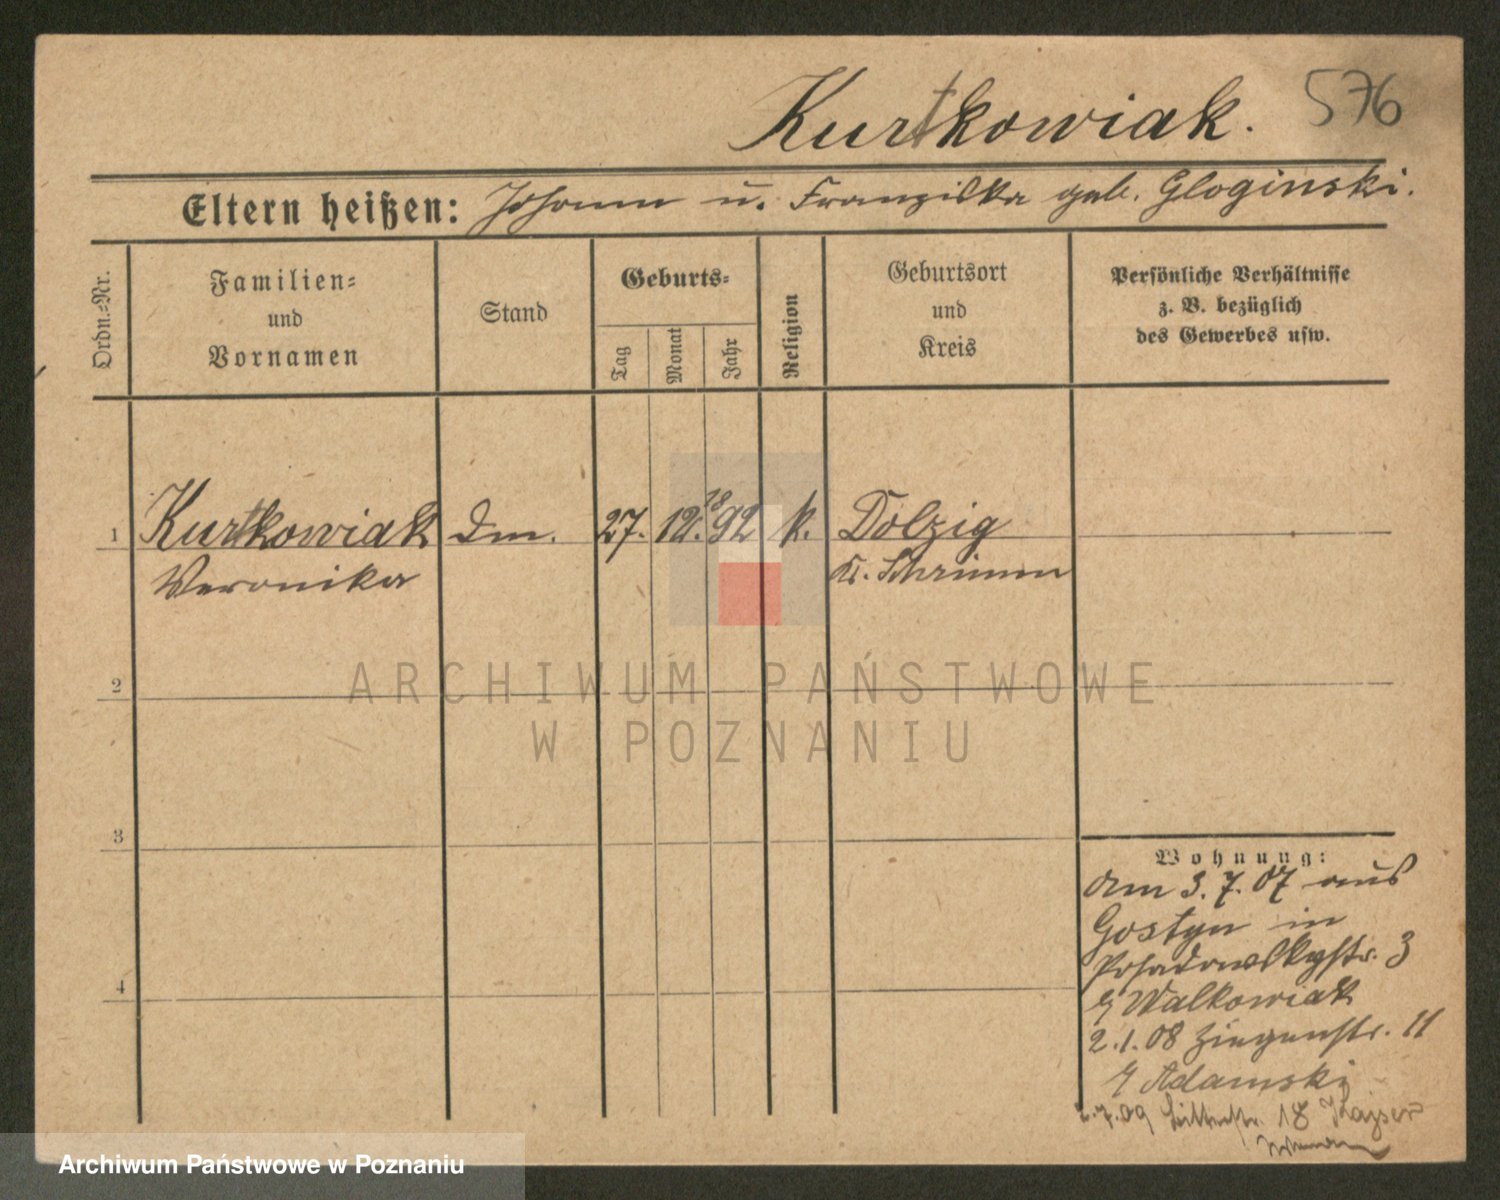 Kurtkowiak. 576
Eltern heißen: Johann u. Franziska geb. Gloginski.
Ordn.-Nr.
Familien-
und
Vornamen
Stand
Geburts-
Tag
Monat
Jahr
Religion
Geburtsort
und
Kreis
Persönliche Verhältnisse
z. B. bezüglich
des Gewerbes usw.
1 Kurtkowiak Dm. 27. 12. 1892 k. Dolzig
Veronika Kr. Schrimm
2
3
4
Wohnung:
am 3. 7. 07 aus
Gostyn in
Posadowskystr. 3
Walkowiak
2. 1. 08 Ziegenstr. 11
Adamski
2.7.09 18 Kajser
ARCHIWUM PAŃSTWOWE
W POZNANIU
Archiwum Państwowe w Poznaniu